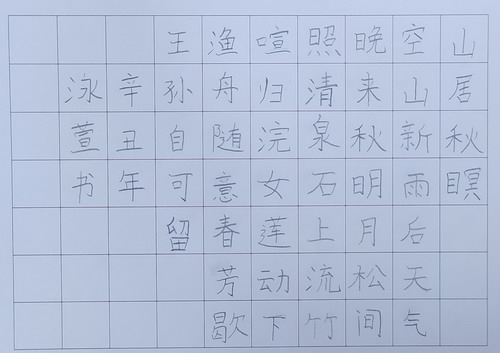 山居秋瞑
空山新雨后天气
晚来秋明月松间
照清泉石上流竹
喧归浣女莲动下
渔舟随意春芳歇
王孙自可留
辛丑年
泳萱书